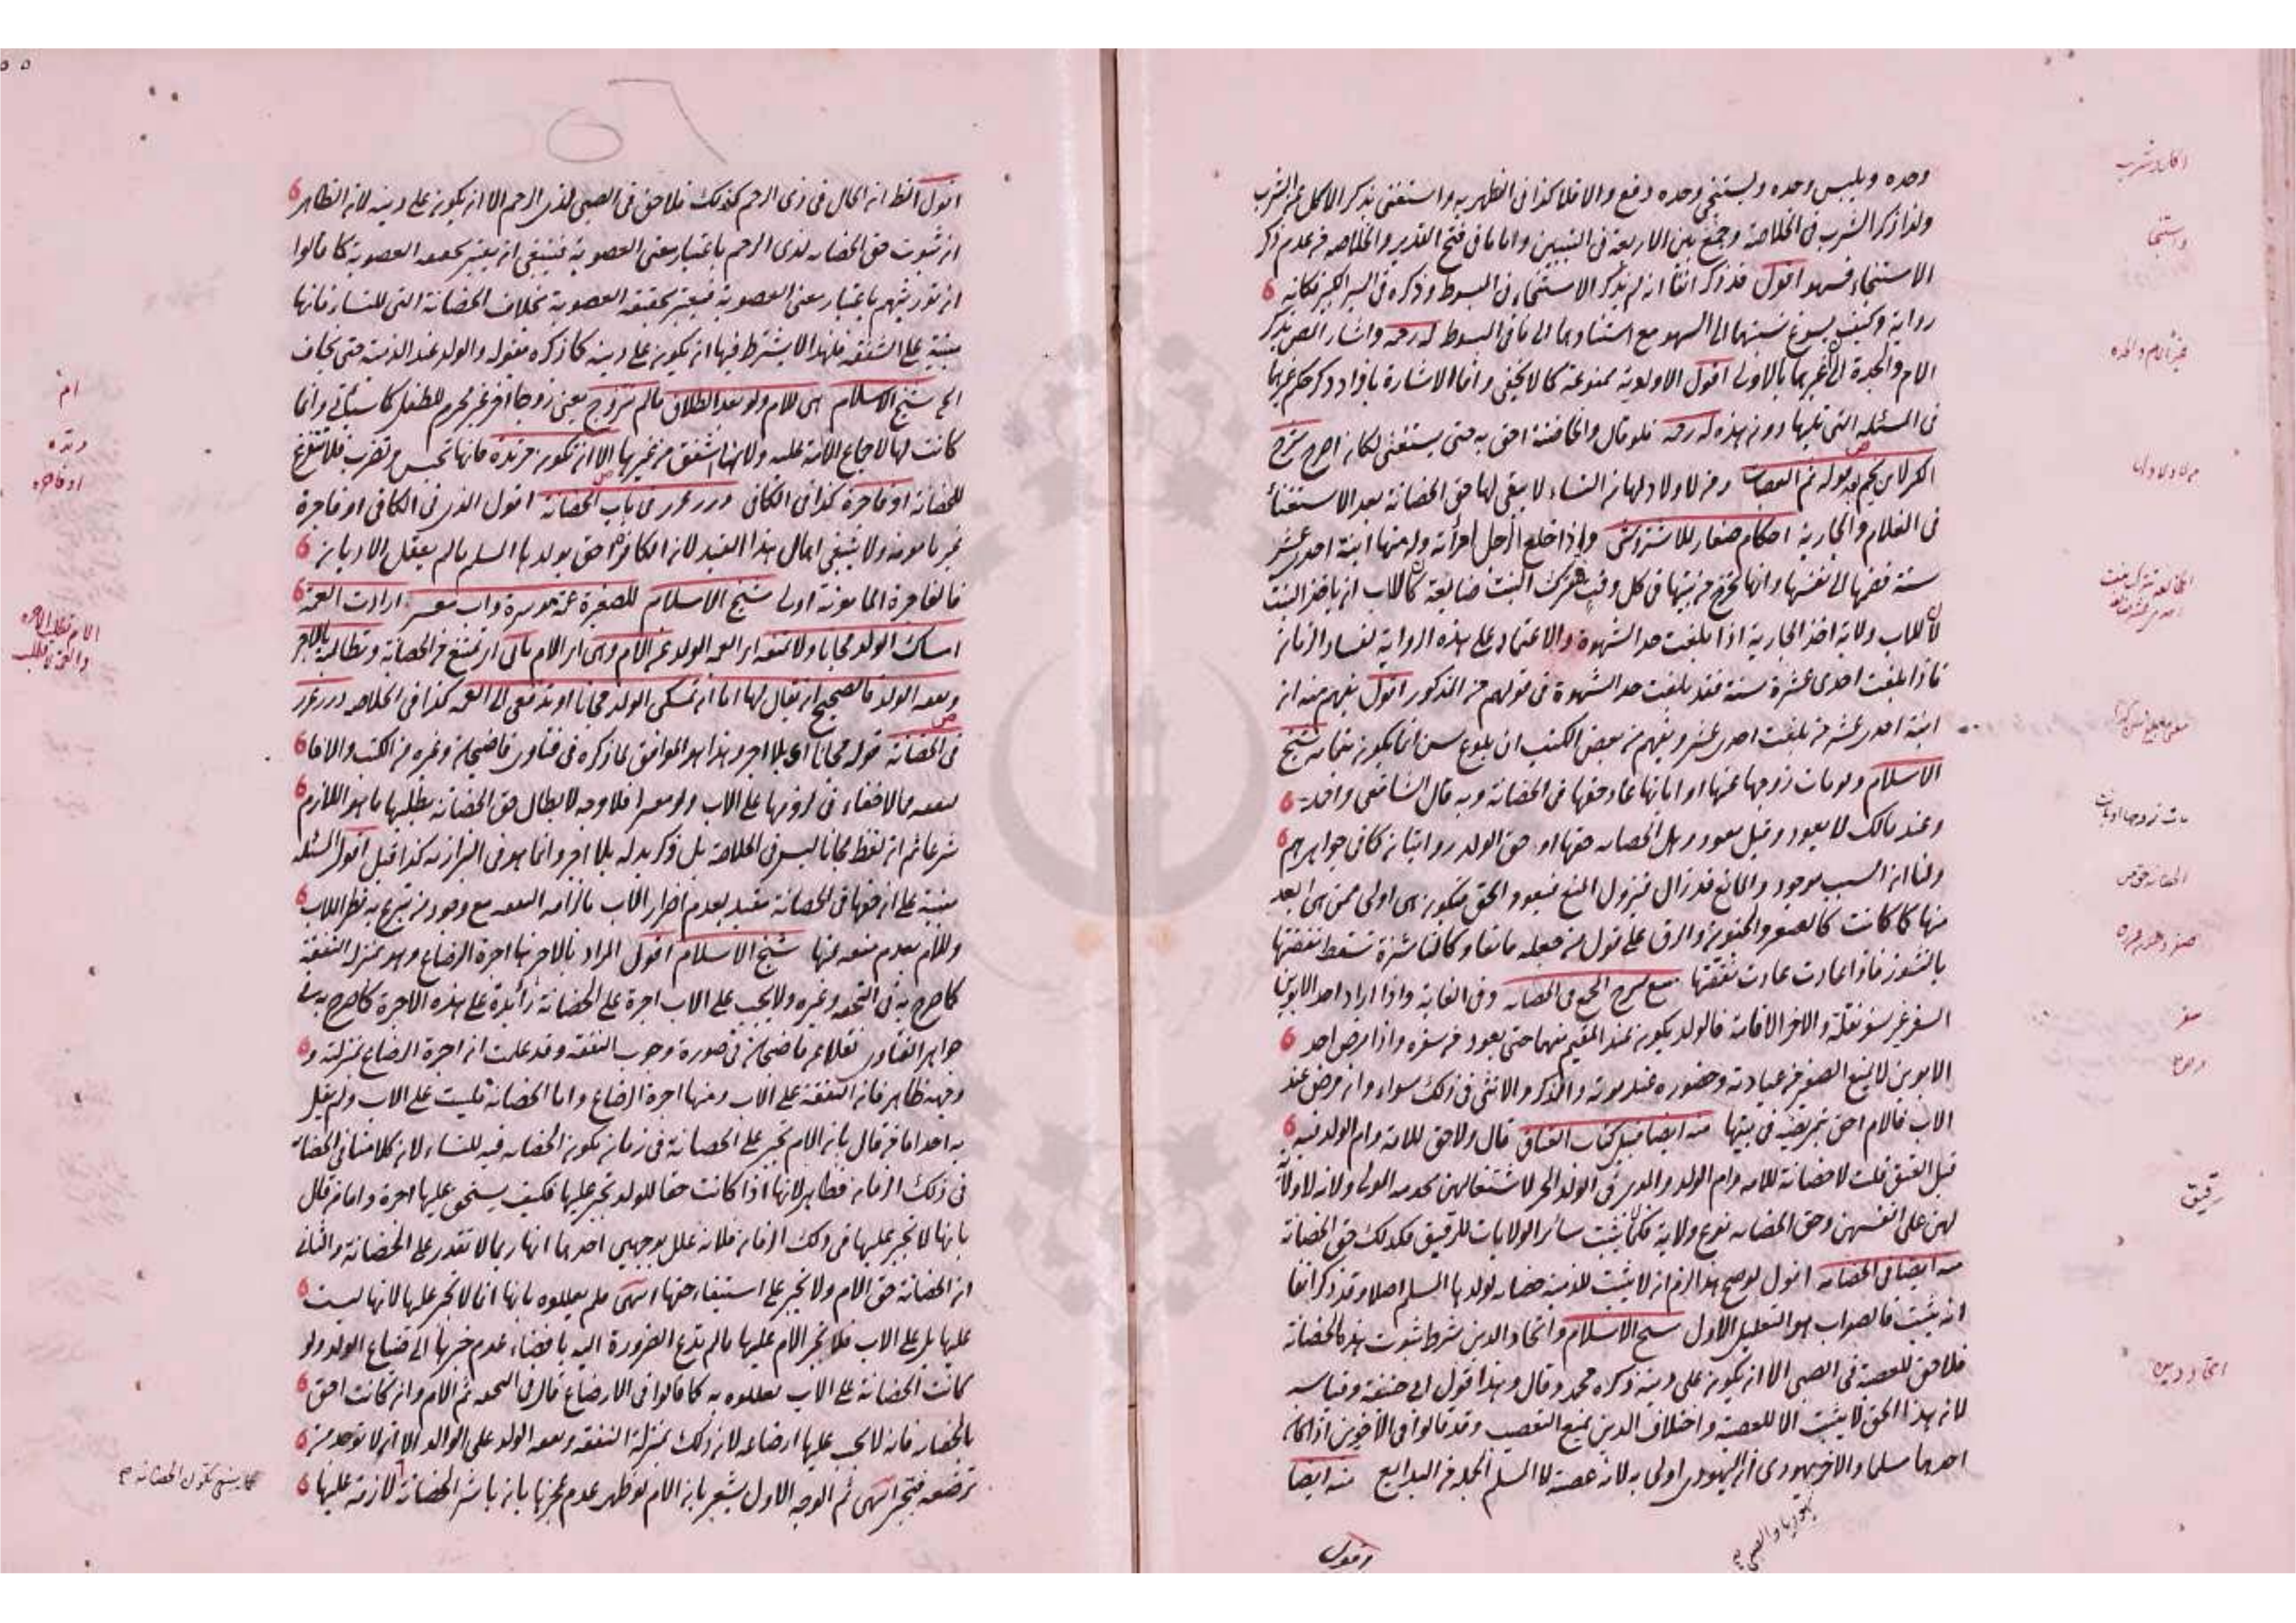 وحده ويلبس وحده ويستنجي وحده دفع والا فلا كذا في الظهيريه واستغنى بذكر الاكل عن الشرب
ولذا ذكر الشرب في الخلاصة وجمع بين الاربعة في التبيين واما ما في فتح القدير والخلاصه من عدم ذكر
الاستنجاء فسهو اقول قد ذكر انفا انه لم يذكر الاستنجاء في المبسوط وذكره في السير الكبير فكانه
رواية وكيف يسوغ نسبتهما الى السهو مع استنادهما الى ما في المبسوط واشار المص بذكر
الام والجدة الى غيرهما بالاولى اقول الاولوية ممنوعة كما لا يخفى واما الاشارة حكم غيرهما
في المسئلة التي تليها دون هذه فلو قال والحاضنة احق به حتى يستغنى لكان اصرح شرح
الكنز لابن نجيم قوله ثم العصبات ومن لا ولاد لها من النساء لا يبقى لها حق الحضانة بعد الاستغناء
في الغلام والجارية احكام صغار للاشتروشني واذا خلع الرجل امرأته وله منها ابنة احدى عشر
سنة فضمها الى نفسها وانها تخرج من بيتها في كل وقت وتترك البنت ضايعة كان للاب ان ياخذ البنت
لان للاب ولاية اخذ الجارية اذا بلغت حد الشهوة والاعتماد على هذه الرواية لفساد الزمان
فاذا بلغت احدى عشرة سنة فقد بلغت حد الشهوة في قولهم من المذكور اقول يفهم منه ان
ابنة احدى عشر من بلغت احدى عشر ويفهم من بعض الكتب ان بلوغ سن انما يكون بتمامه شيخ
الاسلام ولو مات زوجها عنها او ابانها عاد حقها في الحضانة وبه قال الشافعي واحمد
وعند مالك لا يعود وقيل يعود وهل الحضانه حقها او حق الولد روايتان كما في جواهرهم
ولنا ان السبب موجود والمانع قد زال فيزول المنع فيعود الحق فتكون هي اولى ممن هي ابعد
منها كما كانت كالصغر والجنون والرق على قول من جعله مانعا وكالناشزة تسقط نفقتها
بالنشوز فاذا عادت عادت نفقتها شرح المجمع في الحضانه وفي الغاية واذا اراد احد الابوين
السفر غير سفر نقلة والاخر الاقامة فالولد يكون عند المقيم منهما حتى يعود من سفره واذا مرض احد
الابوين لا يمنع الصغير من عيادته وحضوره عند موته والذكر والانثى في ذلك سواء وان مرض عند
الاب فالام احق بتمريضه في بيتها منه ايضا قبيل كتاب العتاق قال ولا حق للامة وام الولد فيه
قبل العتق قلت لا حضانة للامه وام الولد والمدبرة في الولد الحر لاشتغالهن بخدمه المولى ولانه لا ولاية
لهن على انفسهن وحق الحضانه نوع ولاية فكما لا يثبت سائر الولايات للرقيق فكذلك حق الحضانة
منه ايضا في الحضانه اقول لو صح هذا لزم ان لا يثبت للذمية حضانه لولدها المسلم اصلا وقد ذكر انفا
انه يثبت فالصواب هو التعليل الاول شيخ الاسلام واتحاد الدين شرط ثبوت هذه الحضانة
فلا حق للعصبة في الصبي الا ان يكون على دينه ذكره محمد وقال وهذا قول ابي حنيفة وقياسه
لان هذا الحق لا يثبت الا للعصبة واختلاف الدين يمنع التعصيب وقد قالوا في الاخوين اذا كان
احدهما مسلما والاخر يهودي ان اليهودي اولى به لانه عصبته لا المسلم الجملة من البدايع منه ايضا
يهوديا والصبي
اقول
اكل وشرب
واستنجا
غير الام والجدة
مات زوجها او بانت
الحضانة حق من
سفر
مرض
رقيق
اتحاد دين
اقول الظ ان الحال في ذي الرحم كذلك فلا حق في الصبي لذي الرحم الا ان يكون على دينه لان الظاهر
ان ثبوت حق الحضانه لذي الرحم باعتبار معنى العصوبة فينبغي ان يعتبر بحقيقه العصوبة كما قالوا
ان توريثهم باعتبار معنى العصوبة فيعتبر بحقيقه العصوبة بخلاف الحضانة التي للنساء فانها
مبنية على الشفقة فلهذا لا يشترط فيها ان يكون على دينه كما ذكره بقوله والولد عند الذمية حتى يخاف
الخ شيخ الاسلام هي للام ولو بعد الطلاق ما لم تتزوج يعني زوجا اخر غير محرم للطفل كما سيأتي وانما
كانت لها لاجماع الامة عليه ولانها اشفق من غيرها الا ان تكون مرتدة فانها تحبس وتضرب فلا تتفرغ
للحضانة او فاجرة كذا في الكافي درر غرر في باب الحضانة اقول الذي في الكافي او فاجرة
غير مامونه ولا ينبغي اهمال هذا القيد لان الكافرة احق بولدها المسلم ما لم يعقل الاديان
فالفاجرة المامونه اولى شيخ الاسلام للصغيرة عمة موسرة واب معسر ارادت العمة
امساك الولد مجانا ولا تمنعه اي العمه الولد عن الام وهي اي الام تابى اي تمتنع من الحضانة وتطالبه بالاجر
ونفقه الولد فالصحيح ان يقال لها اما ان تمسكي الولد مجانا او تدفعي الى العمه كذا في الخلاصه درر غرر
في الحضانة قوله مجانا اي بلا اجر وهذا هو الموافق لما ذكره في فتاوى قاضيخان وغيره من الكتب والا فا
لنفقه مما لا خفاء في لزومها على الاب ولو معسرا فلا وجه لابطال حق الحضانه بطلبها ما هو اللازم
شرعا ثم ان لفظ مجانا ليس في الخلاصة بل ذكر بدله بلا اجر وانما هو في البزازيه كذا قيل اقول المسئله
مبنية على ان حقها في الحضانة مقيد بعدم اضرار الاب بالزامه النفقه مع وجود من تبرع به نظرا للاب
وللام بعدم منعه عنها شيخ الاسلام اقول المراد بالاجر هنا اجرة الرضاع وهو بمنزله النفقة
كما صرح به في التحفه وغيره ولا يجب على الاب اجرة على الحضانة زائدة على هذه الاجرة كما صرح به في
جواهر الفتاوى نقلا عن قاضيخان في صورة وجوب النفقه وقد علمت ان اجرة الرضاع بمنزلته و
وجهه ظاهر فان النفقة على الاب ومنها اجرة الرضاع واما الحضانة فليست على الاب ولم يقل
به احد اما من قال بان الام تجبر على الحضانة في زمان تكون الحضانه فيه للنساء لان كلامنا في الحضانة
في ذلك الزمان فظاهر لانها اذا كانت حقا للولد تجبر عليها فكيف يستحق عليها اجرة واما من قال
بانها لا تجبر عليها في ذلك الزمان فلانه علل بوجهين احدهما انها ربما لا تقدر على الحضانة والثاني
ان الحضانة حق الام ولا تجبر على استيفاء حقها انتهى فلم يعللوه بانها انما لا تجبر عليها لانها ليست
عليها بل على الاب فلا تجبر الام عليها ما لم تدع الضرورة اليه بافضاء عدم جبرها الى ضياع الولد ولو
كانت الحضانة على الاب لعللوه به كما قالوا في الارضاع قال في التحفه ثم الام وان كانت احق
بالحضانه فانه لا يجب عليها ارضاعه لان ذلك بمنزلة النفقه ونفقه الولد على الوالد الا ان لا توجد من
ترضعه فتجبر انتهى ثم الوجه الاول يشعر بان الام لو ظهر عدم عجزها بان باشر الحضانة لازمة عليها
ام
مرتده
او فاجره
الام تطلب الاجره
والعمة لا تطلب